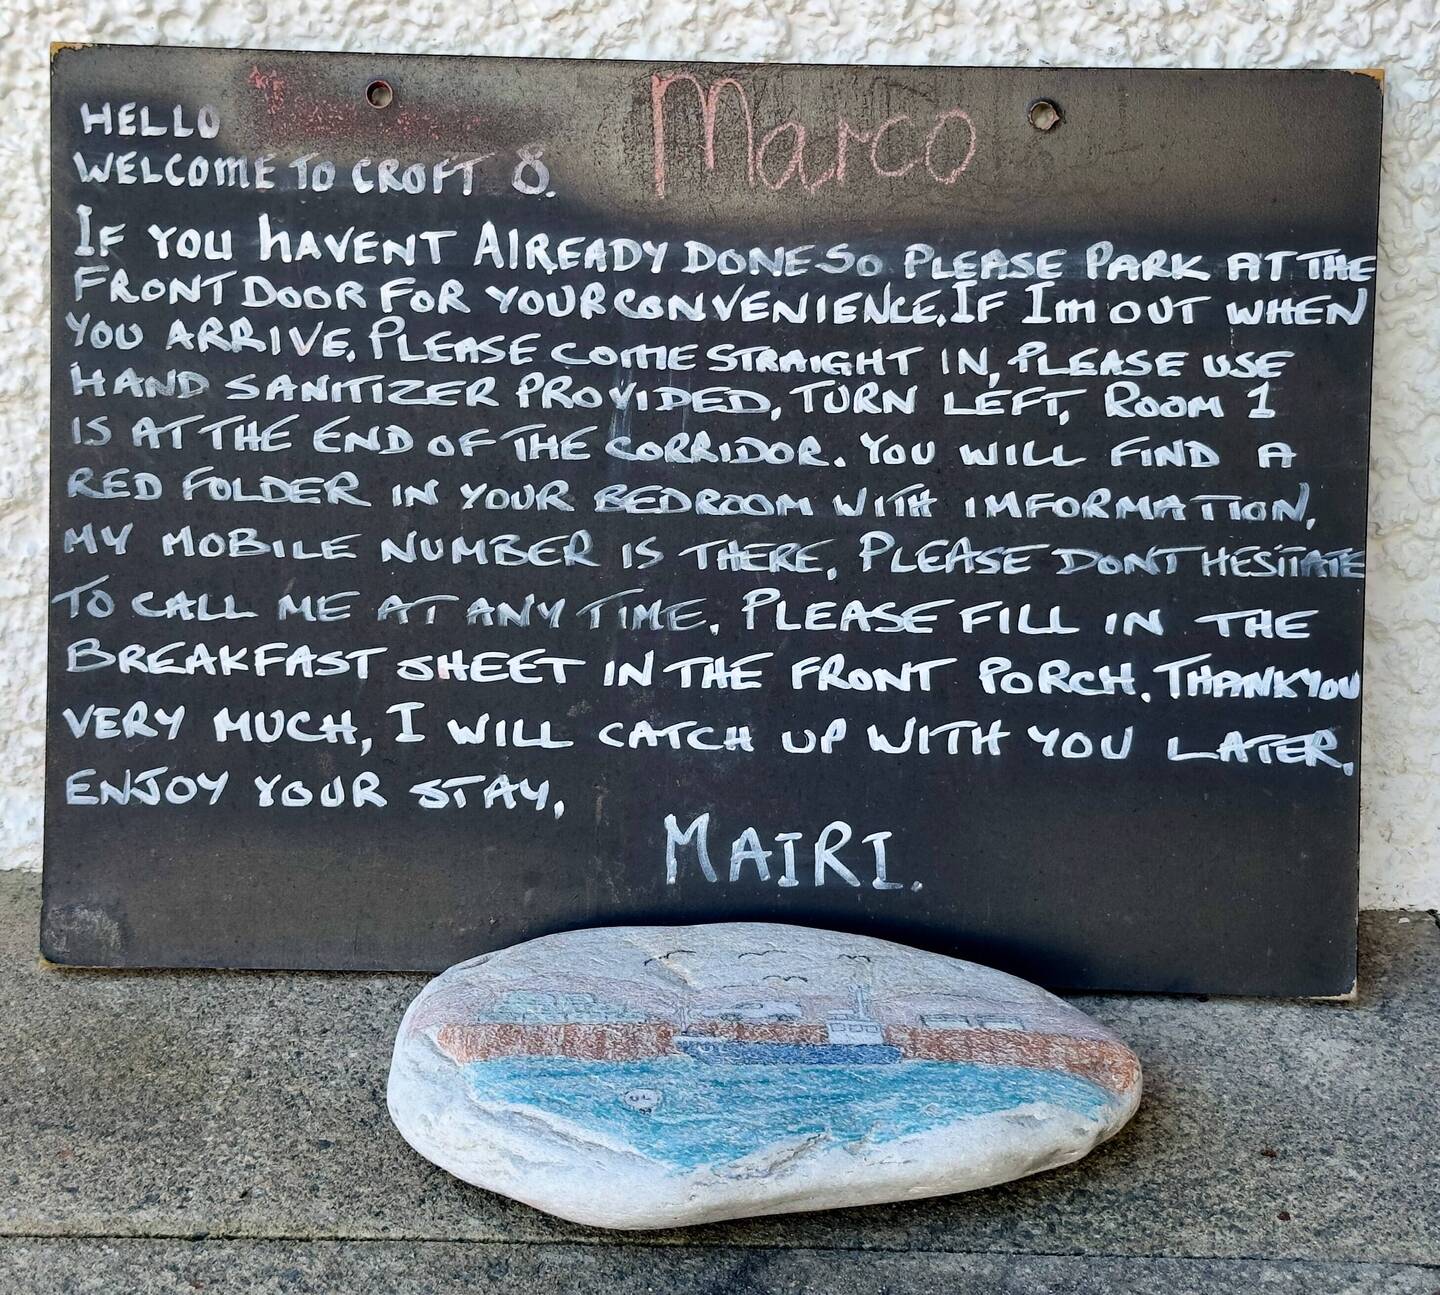 HELLO Marco
WELCOME TO CROFT 8.
IF YOU HAVENT AlREADY DONE SO PLEASE PARK AT THE
FRONT DOOR FOR YOUR CONVENIENCE. IF Im OUT WHEN
YOU ARRIVE. PLEASE COME STRAIGHT IN, PLEASE USE
HAND SANITIZER PROVIDED, TURN LEFT, ROOM 1
IS AT THE END OF THE CORRIDOR. YOU WILL FIND A
RED FOLDER IN YOUR BEDROOM WITH IMFORMATION,
MY MOBILE NUMBER IS THERE, PLEASE DONT HESITATE
TO CALL ME AT ANY TIME. PLEASE FILL IN THE
BREAKFAST SHEET IN THE FRONT PORCH. THANKYOU
VERY MUCH, I WILL CATCH UP WITH YOU LATER.
ENJOY YOUR STAY,
MAIRI.